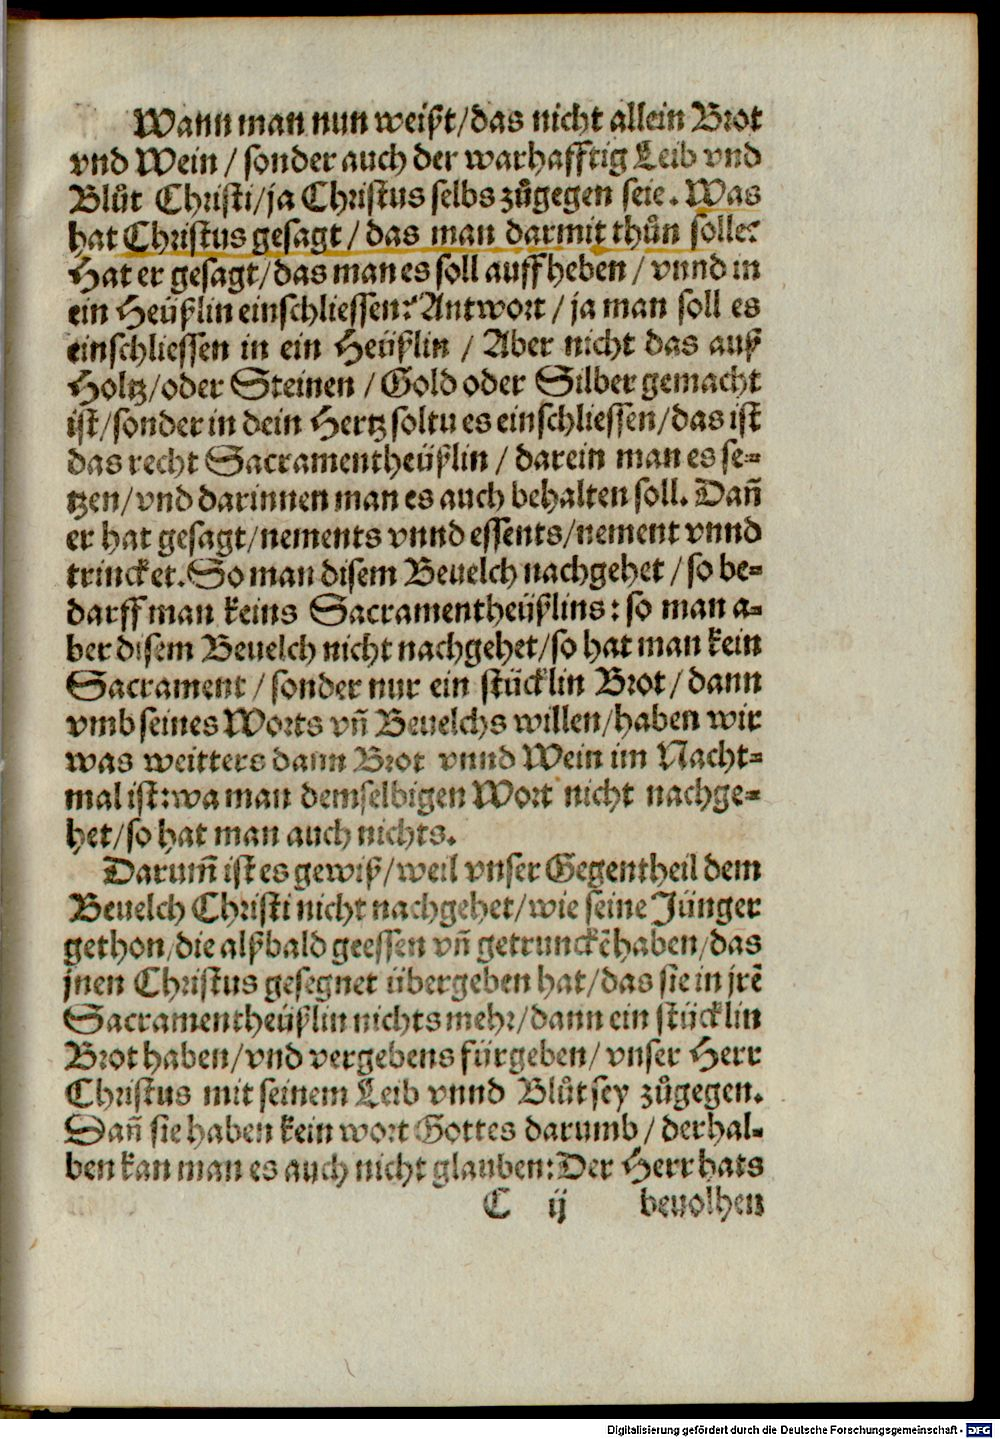 Wann man nun weißt/das nicht allein Brot
vnd Wein / sonder auch der warhafftig Leib vnd
Blůt Christi/ja Christus selbs zůgegen seie. Was
hat Christus gesagt / das man darmit thůn solle?
Hat er gesagt/das man es soll auffheben / vnnd in
ein Heüßlin einschliessen? Antwort / ja man soll es
einschliessen in ein Heüßlin / Aber nicht das auß
Holtz/oder Steinen / Gold oder Silber gemacht
ist/sonder in dein Hertz soltu es einschliessen/das ist
das recht Sacramentheüßlin / darein man es se-
tzen/vnd darinnen man es auch behalten soll. Dañ
er hat gesagt/nements vnnd essents/nement vnnd
trincket. So man disem Beuelch nachgehet / so be-
darff man keins Sacramentheüßlins: so man a-
ber disem Beuelch nicht nachgehet/so hat man kein
Sacrament / sonder nur ein stücklin Brot / dann
vmb seines Worts vñ Beuelchs willen/haben wir
was weitters dann Brot vnnd Wein im Nacht-
mal ist: wa man demselbigen Wort nicht nachge-
het/so hat man auch nichts.
Darum̃ ist es gewiß/weil vnser Gegentheil dem
Beuelch Christi nicht nachgehet/wie seine Jünger
gethon/die alßbald geessen vñ getrunckẽ haben/das
jnen Christus gesegnet übergeben hat/das sie in jrẽ
Sacramentheüßlin nichts mehr/dann ein stücklin
Brot haben/vnd vergebens fürgeben/vnser Herr
Christus mit seinem Leib vnnd Blůt sey zůgegen.
Dañ sie haben kein wort Gottes darumb / derhal-
ben kan man es auch nicht glauben: Der Herr hats
C ij bevolhen
Digitalisierung gefördert durch die Deutsche Forschungsgemeinschaft - DFG